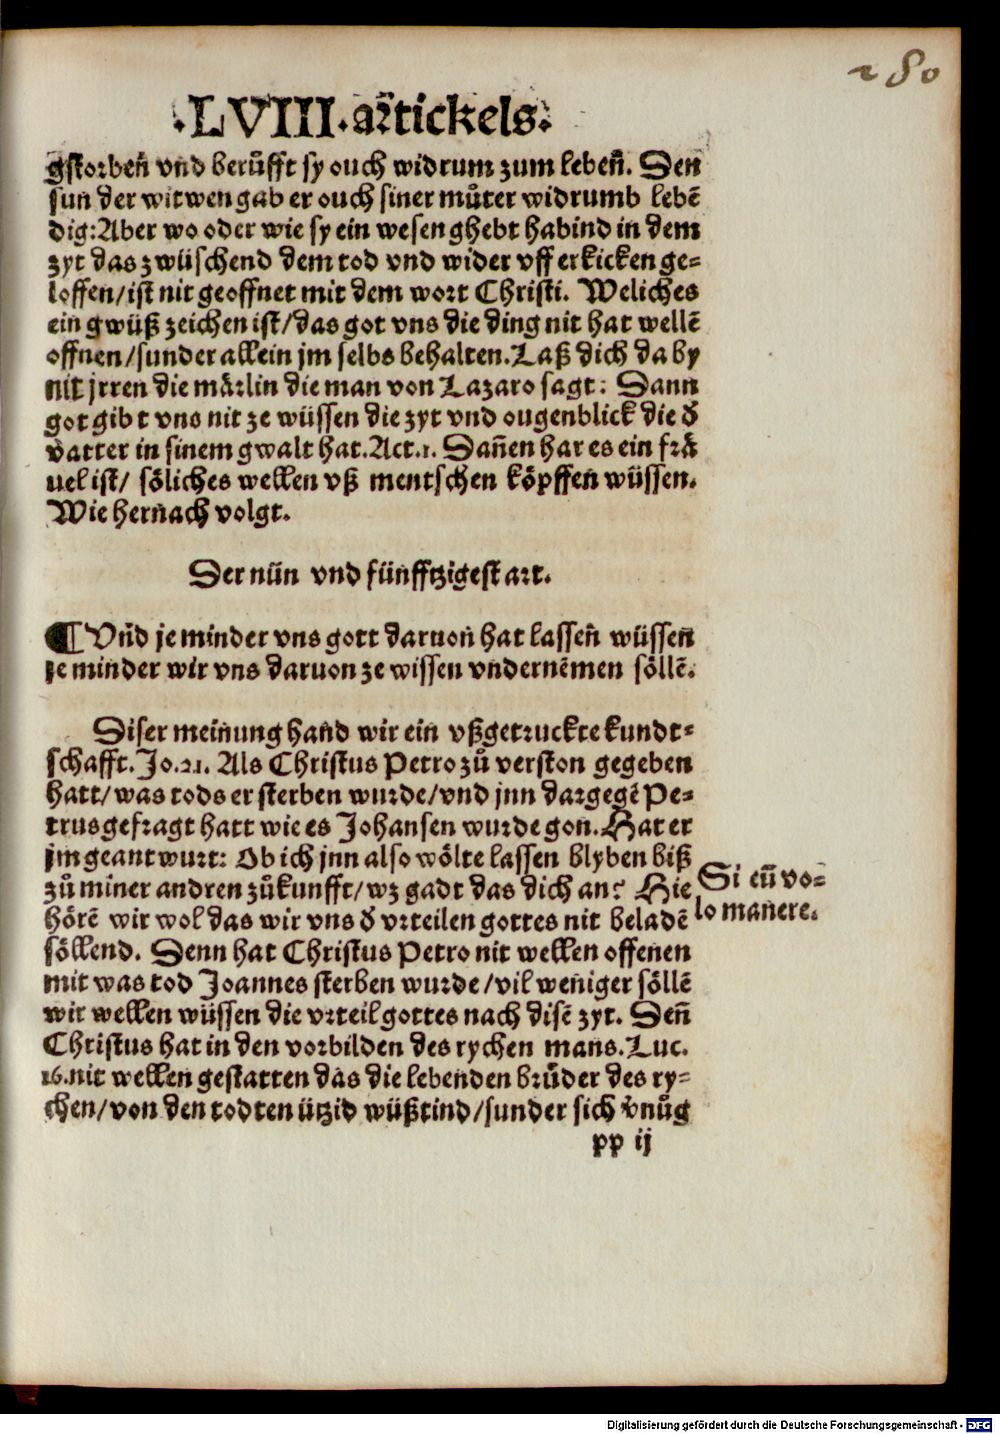 280
.LVIII. artickels.
gstorbeñ vnd berůfft sy ouch widrum zum lebeñ. Den
sun der witwen gab er ouch siner můter widrumb lebē
dig: Aber wo oder wie sy ein wesen ghebt habind in dem
zyt das zwüschend dem tod vnd wider vff erkicken ge=
loffen/ist nit geoffnet mit dem wort Christi. Weliches
ein gwüß zeichen ist/das got vns die ding nit hat wellē
offnen/sunder allein jm selbs behalten. Laß dich da by
nit jrren die mårlin die man von Lazaro sagt: Dann
got gibt vns nit ze wüssen die zyt vnd ougenblick die d̕
vatter in sinem gwalt hat. Act.1. Dañen har es ein frå
uel ist/ söliches wellen vß mentschen köpffen wüssen.
Wie hernach volgt.
Der nün vnd fünfftzigest art.
¶ Vñd je minder vns gott daruon hat lasseñ wüssen
je minder wir vns daruon ze wissen vndernēmen söllē.
Diser meinung hand wir ein vßgetruckte kundt=
schafft. Jo.21. Als Christus Petro zů verston gegeben
hatt/was tods er sterben wurde/vnd jnn dargegē Pe=
trus gefragt hatt wie es Johansen wurde gon. Hat er
jm geantwurt: Ob ich jnn also wölte lassen blyben biß
zů miner andren zůkunfft/wz gadt das dich an? Hie
hörē wir wol das wir vns d̕ vrteilen gottes nit beladē
söllend. Denn hat Christus Petro nit wellen offenen
mit was tod Joannes sterben wurde/vil weniger söllē
wir wellen wüssen die vrteil gottes nach disē zyt. Deñ
Christus hat in den vorbilden des rychen mans. Luc.
16. nit wellen gestatten das die lebenden brůder des ry=
chen/von den todten ützid wüßtind/sunder sich v̕nůg
Si eū vo=
lo manere.
pp ij
Digitalisierung gefördert durch die Deutsche Forschungsgemeinschaft - DFG